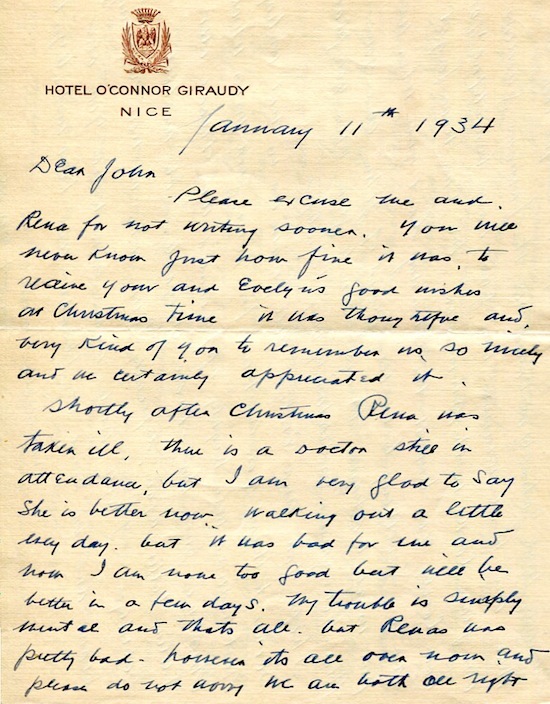 HOTEL O'CONNOR GIRAUDY
NICE
January 11th 1934
Dear John
Please excuse me and
Rena for not writing sooner. You will
never know just how fine it was, to
receive your and Evelyn's good wishes
at Christmas time it was thoughtful and,
very kind of you to remember us, so nicely
and we certainly appreciated it.
Shortly after Christmas Rena was
taken ill, there is a doctor still in
attendance, but I am very glad to say
She is better now. Walking out a little
every day. but it was bad for me and
now I am none too good but will be
better in a few days. My trouble is simply
mental and thats all. but Renas was
pretty bad - however its all over now and
please do not worry We are both all right